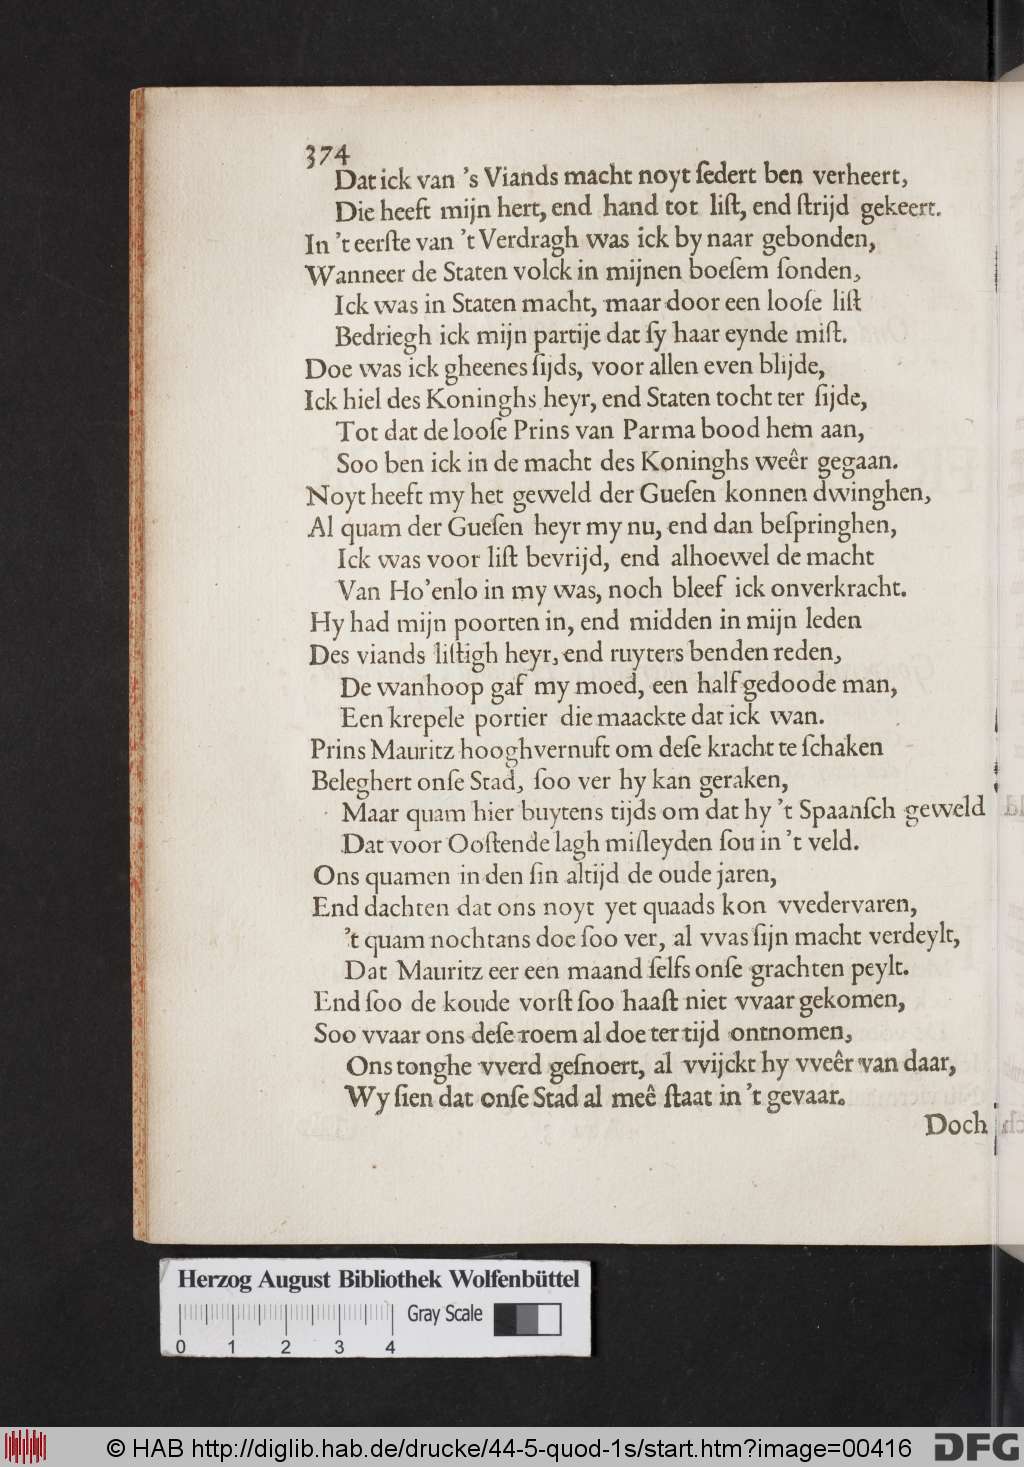 374
Dat ick van 's Viands macht noyt ſedert ben verheert,
Die heeft mijn hert, end hand tot liſt, end ſtrijd gekeert.
In 't eerſte van 't Verdragh was ick by naar gebonden,
Wanneer de Staten volck in mijnen boeſem ſonden,
Ick was in Staten macht, maar door een looſe liſt
Bedriegh ick mijn partije dat ſy haar eynde miſt.
Doe was ick gheenes ſijds, voor allen even blijde,
Ick hiel des Koninghs heyr, end Staten tocht ter ſijde,
Tot dat de looſe Prins van Parma bood hem aan,
Soo ben ick in de macht des Koninghs weêr gegaan.
Noyt heeft my het geweld der Gueſen konnen dwinghen,
Al quam der Gueſen heyr my nu, end dan beſpringhen,
Ick was voor liſt bevrijd, end alhoewel de macht
Van Ho'enlo in my was, noch bleef ick onverkracht.
Hy had mijn poorten in, end midden in mijn leden
Des viands liſtigh heyr, end ruyters benden reden,
De wanhoop gaf my moed, een half gedoode man,
Een krepele portier die maackte dat ick wan.
Prins Mauritz hooghvernuft om deſe kracht te ſchaken
Beleghert onſe Stad, ſoo ver hy kan geraken,
Maar quam hier buytens tijds om dat hy 't Spaanſch geweld
Dat voor Ooſtende lagh miſleyden ſou in 't veld.
Ons quamen in den ſin altijd de oude jaren,
End dachten dat ons noyt yet quaads kon vvedervaren,
't quam nochtans doe ſoo ver, al vvas ſijn macht verdeylt,
Dat Mauritz eer een maand ſelfs onſe grachten peylt.
End ſoo de koude vorſt ſoo haaſt niet vvaar gekomen,
Soo vvaar ons deſe roem al doe ter tijd ontnomen,
Ons tonghe vverd geſnoert, al vvijckt hy vveêr van daar,
Wy ſien dat onſe Stad al meê ſtaat in 't gevaar.
Doch
Herzog August Bibliothek Wolfenbüttel
Gray Scale
0 1 2 3 4
© HAB http://diglib.hab.de/drucke/44-5-quod-1s/start.htm?image=00416
DFG